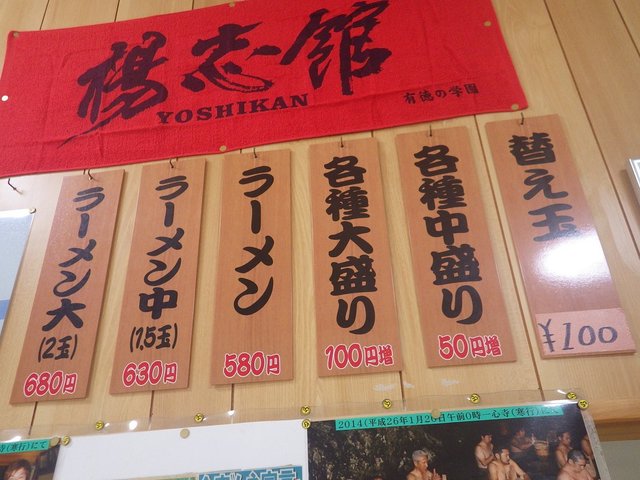 楊志館
YOSHIKAN
有徳の学園
替え玉
¥100
各種中盛り
50円増
各種大盛り
100円増
ラーメン
580円
ラーメン中
(1.5玉)
630円
ラーメン大
(2玉)
680円
寺(寒行)にて
2014(平成26年1月26日午前0時一心寺(寒行)にて